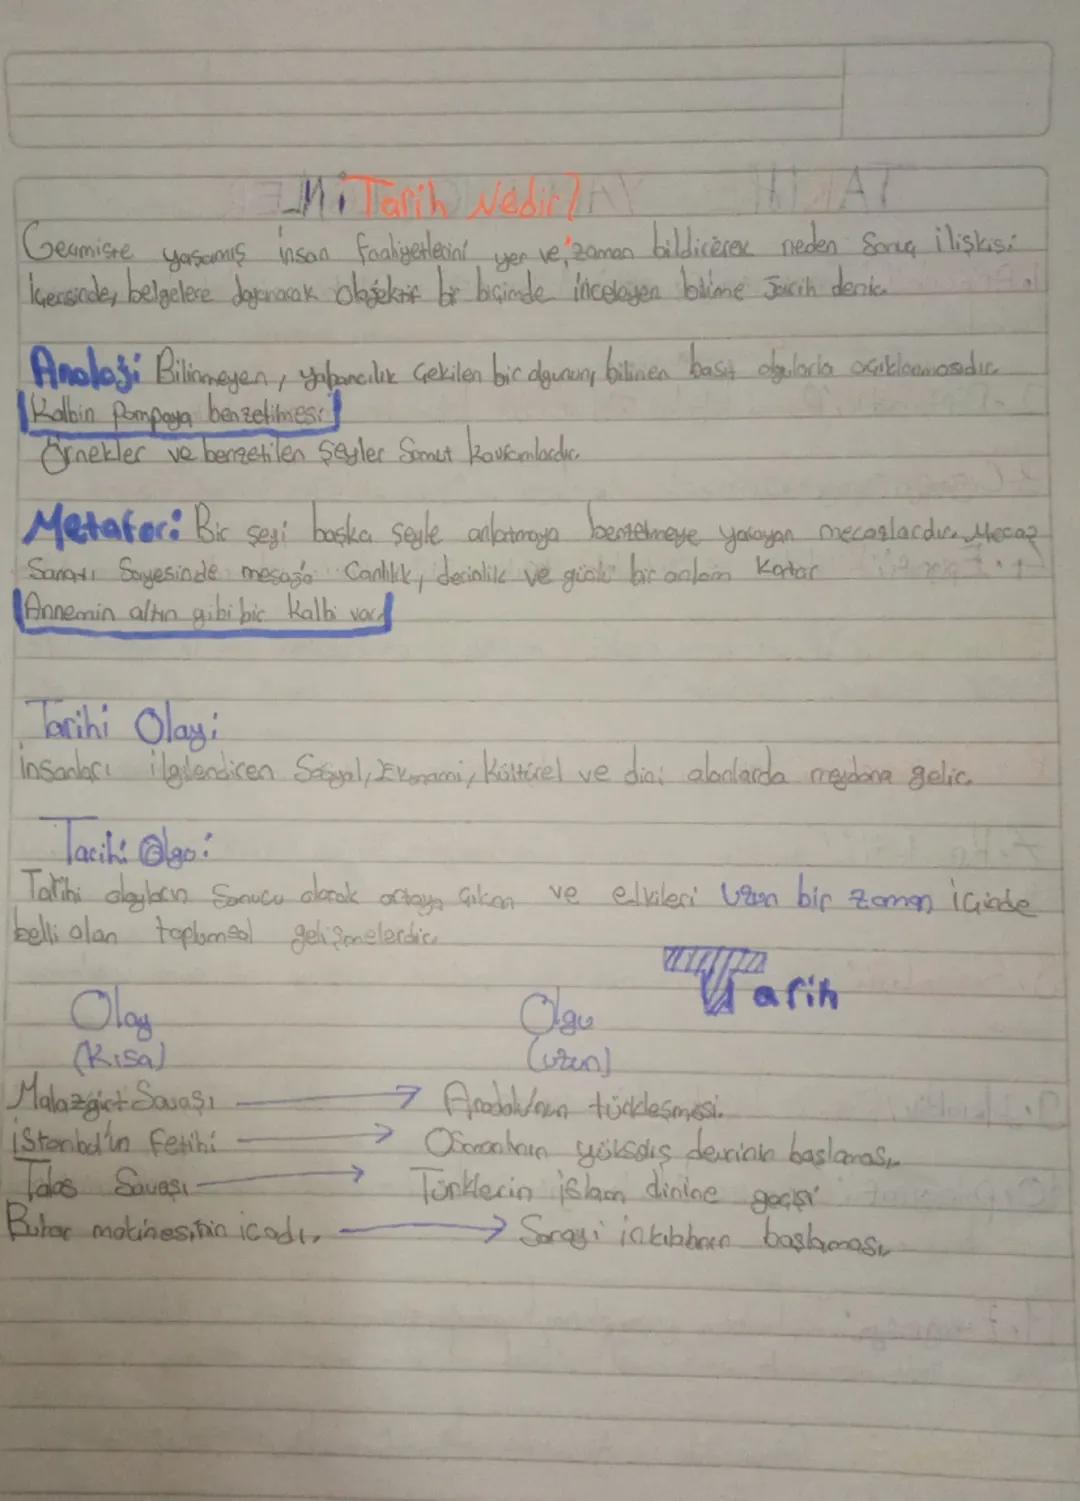 Tarih Nedir?
Geçmişte yaşamış insan faaliyetlerini yer ve zaman bildirerek neden Sonuç ilişkisi
içersinde, belgelere dayanarak Objektif bir biçimde inceleyen bilime Tarih denir.
Analoji Bilinmeyen, yabancılık Çekilen bir olgunun, bilinen basit olgularla açıklanmasıdır.
Kalbin Pompaya benzetilmesi
Örnekler ve benzetilen Şeyler Somut kavramlardır.
Metafor: Bir şeyi başka şeyle anlatmaya benzetmeye yarayan mecazlardır. Mecaz
Sanatı Sayesinde mesaja Canlılık, derinlik ve güçlü bir anlam Katar
Annemin altın gibi bir Kalbi var.
Tarihi Olay:
İnsanları ilgilendiren Sosyal, Ekonomi, Kültürel ve dini alanlarda meydana gelir.
Tarihi Olgu:
Tarihi olayların Sonucu olarak ortaya Çıkan ve etkileri Uzun bir zaman içinde
belli olan toplumsal gelişmelerdir.
Tarih
Olay Olgu
(Kısa) (uzun)
Malazgirt Savaşı → Anadolu'nun türkleşmesi.
İstanbul'un fetihi → Osmanlının yükseliş devrinin başlaması
Talas Savaşı → Türklerin islam dinine geçişi
Buhar makinesinin icadı. → Sanayi inkılabının başlaması